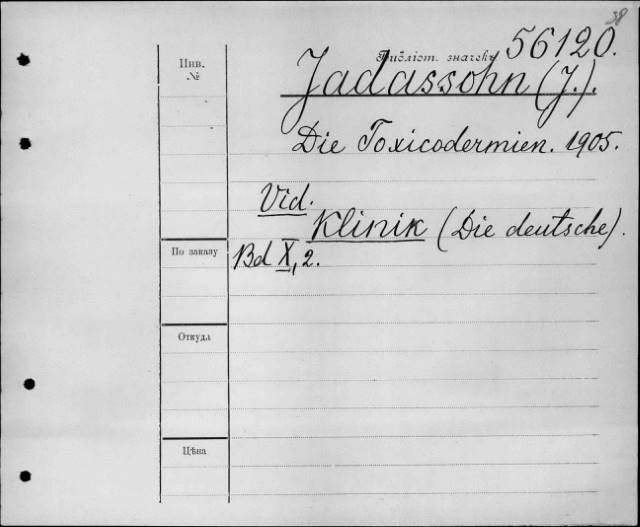 38
Библіот. значекъ 56120.
Инв.
№
Jadassohn (J.).
Die Toxicodermien. 1905.
Vid.
Klinik (Die deutsche).
По заказу
Bd X, 2.
Откуда
Цѣна